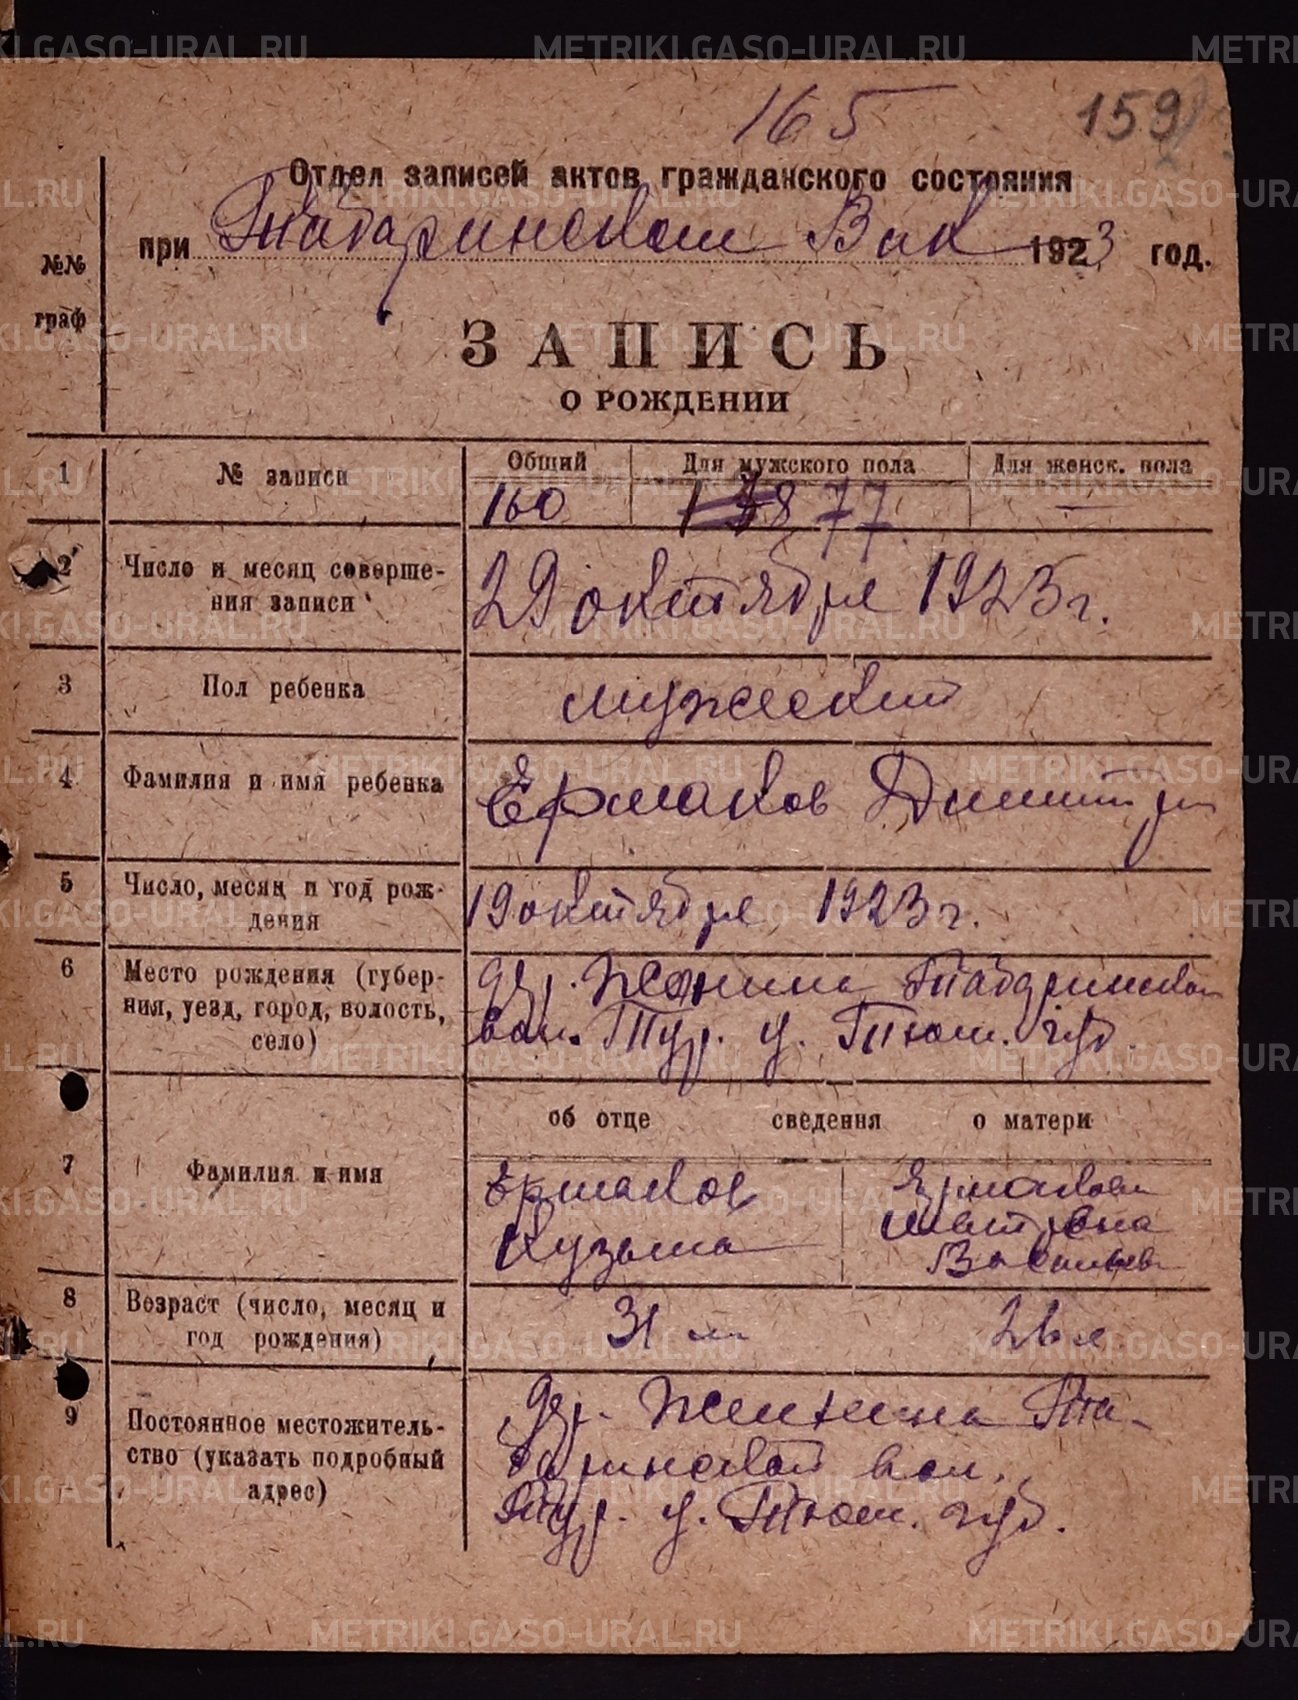 165
159
Отдел записей актов гражданского состояния
при Табаринском Вик 1923 год.
№№
граф
ЗАПИСЬ
О РОЖДЕНИИ
1 № записи Общий Для мужского пола Для женск. пола
160 77. —
2 Число и месяц соверше-
ния записи
29 октября 1923 г.
3 Пол ребенка мужеский
4 Фамилия и имя ребенка Ермаков Димитри
5 Число, месяц и год рож-
дения
19 октября 1923 г.
6 Место рождения (губер-
ния, уезд, город, волость,
село)
дер. Табаринской
вол. Тур. у. Тюм. губ.
об отце сведения о матери
7 Фамилия и имя
Ермаков
Кузьма
Ермакова
Матрена
8 Возраст (число, месяц и
год рождения)
31 26 л
9 Постоянное местожитель-
ство (указать подробный
адрес)
дер. Та-
баринской вол.
Тур. у. Тюм. губ.
METRIKI.GASO-URAL.RU